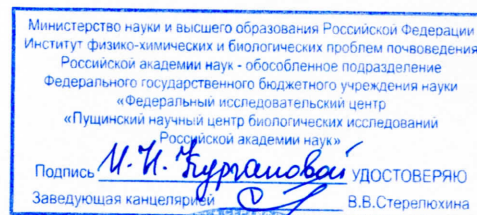 Министерство науки и высшего образования Российской Федерации
Институт физико-химических и биологических проблем почвоведения
Российской академии наук - обособленное подразделение
Федерального государственного бюджетного учреждения науки
«Федеральный исследовательский центр
«Пущинский научный центр биологических исследований
Российской академии наук»
Подпись И.Н. Кургановой УДОСТОВЕРЯЮ
Заведующая канцелярией В.В.Стерелюхина